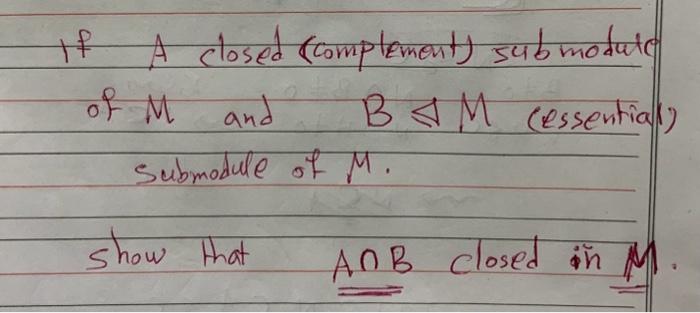 If A closed (complement) submodule
of M and B ⊴ M (essential)
submodule of M.
show that A∩B closed in M.